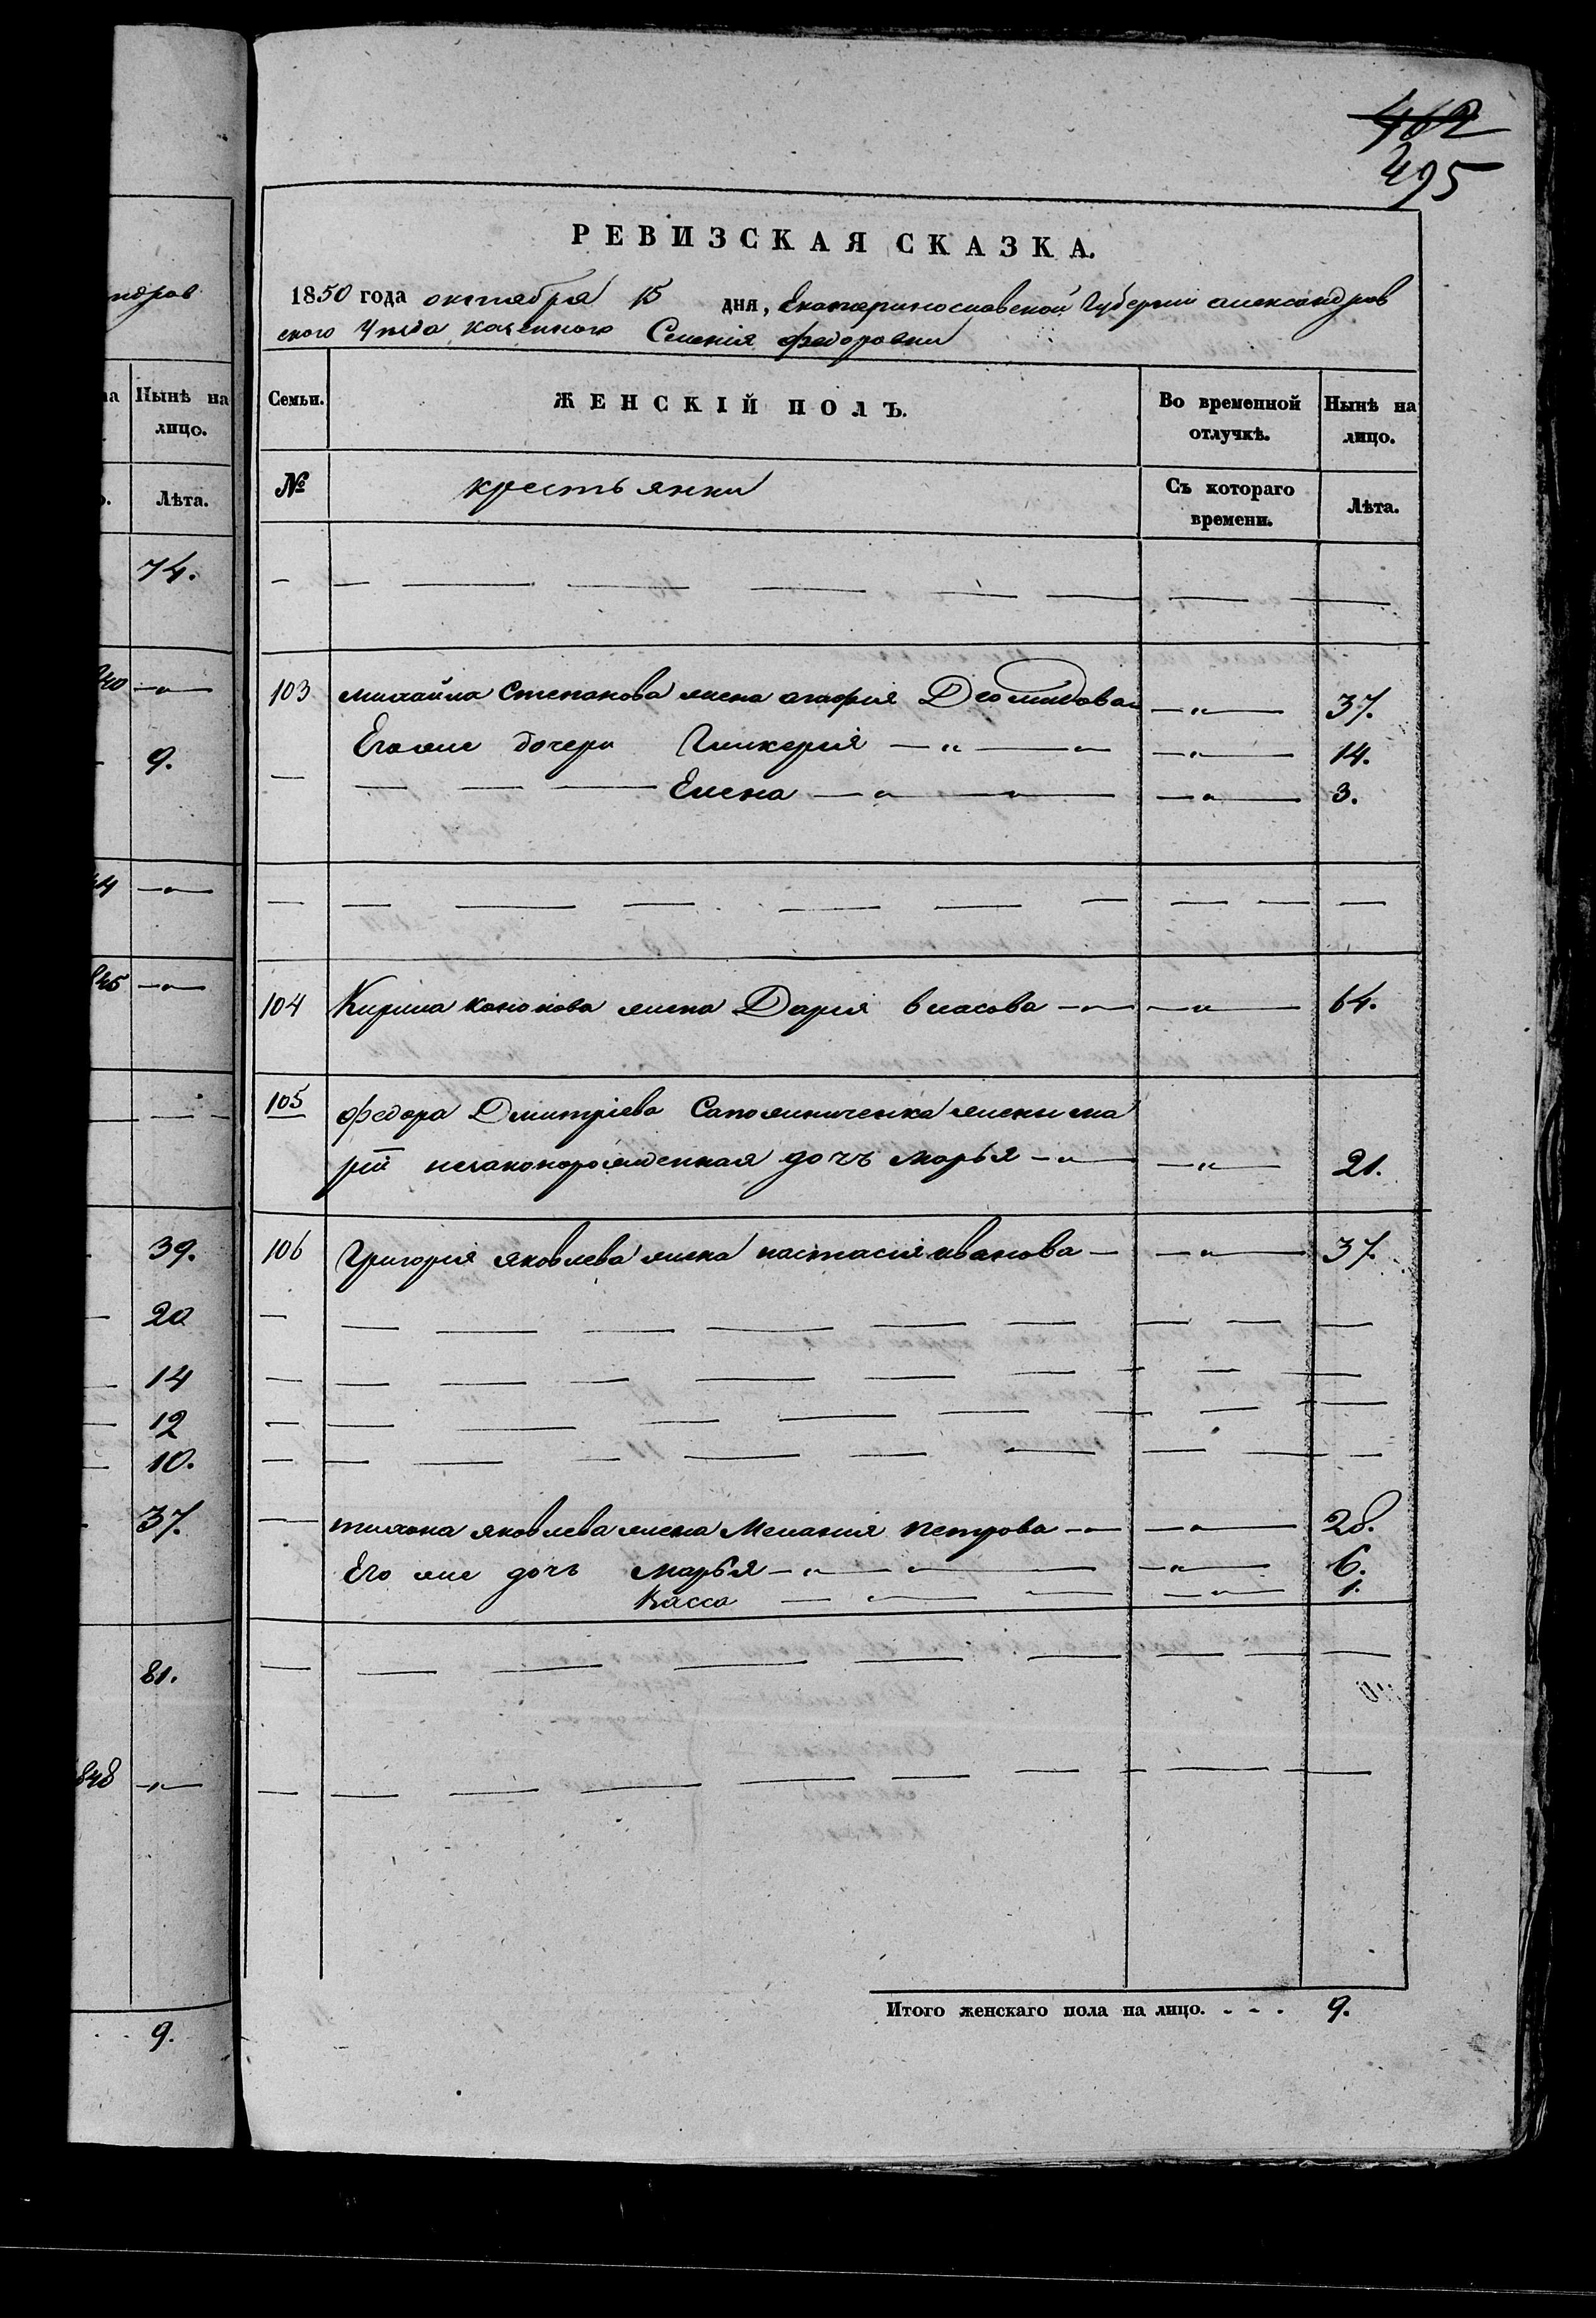 462
495
ндров
РЕВИЗСКАЯ СКАЗКА.
1850 года октября 15 дня, Екатеринославской Губерніи александров
ского Уезда казенного Селенія федоровки
на
Нынѣ на лицо.
Семьи.
ЖЕНСКІЙ ПОЛЪ.
Во временной отлучкѣ.
Нынѣ на лицо.
Лѣта.
№
крестьянки
Съ котораго времени.
Лѣта.
74.
840 —"—
9.
44 —"—
845 —"—
39.
20
14
12
10.
37.
81.
848 —"—
9.
103 михайла Степанова жена агафия Деомидова —"— 37.
Егоже дочери Гликерія —"— —"— 14.
— — — Елена —"— —"— 3.
104 Кирила Кононова жена Дария власова —"— —"— 64.
105 федора Дмитріева Сапожниченка жены ма
ріи незаконорожденная дочъ марья —"— —"— 21.
106 Григория яковлева жена настасия иванова — —"— 37.
тихона яковлева жена Мелания петрова —"— —"— 28.
Его же дочь марья —"— —"— 6.
Васса — —"— — —"— 1.
Итого женскаго пола на лицо. - - - 9.